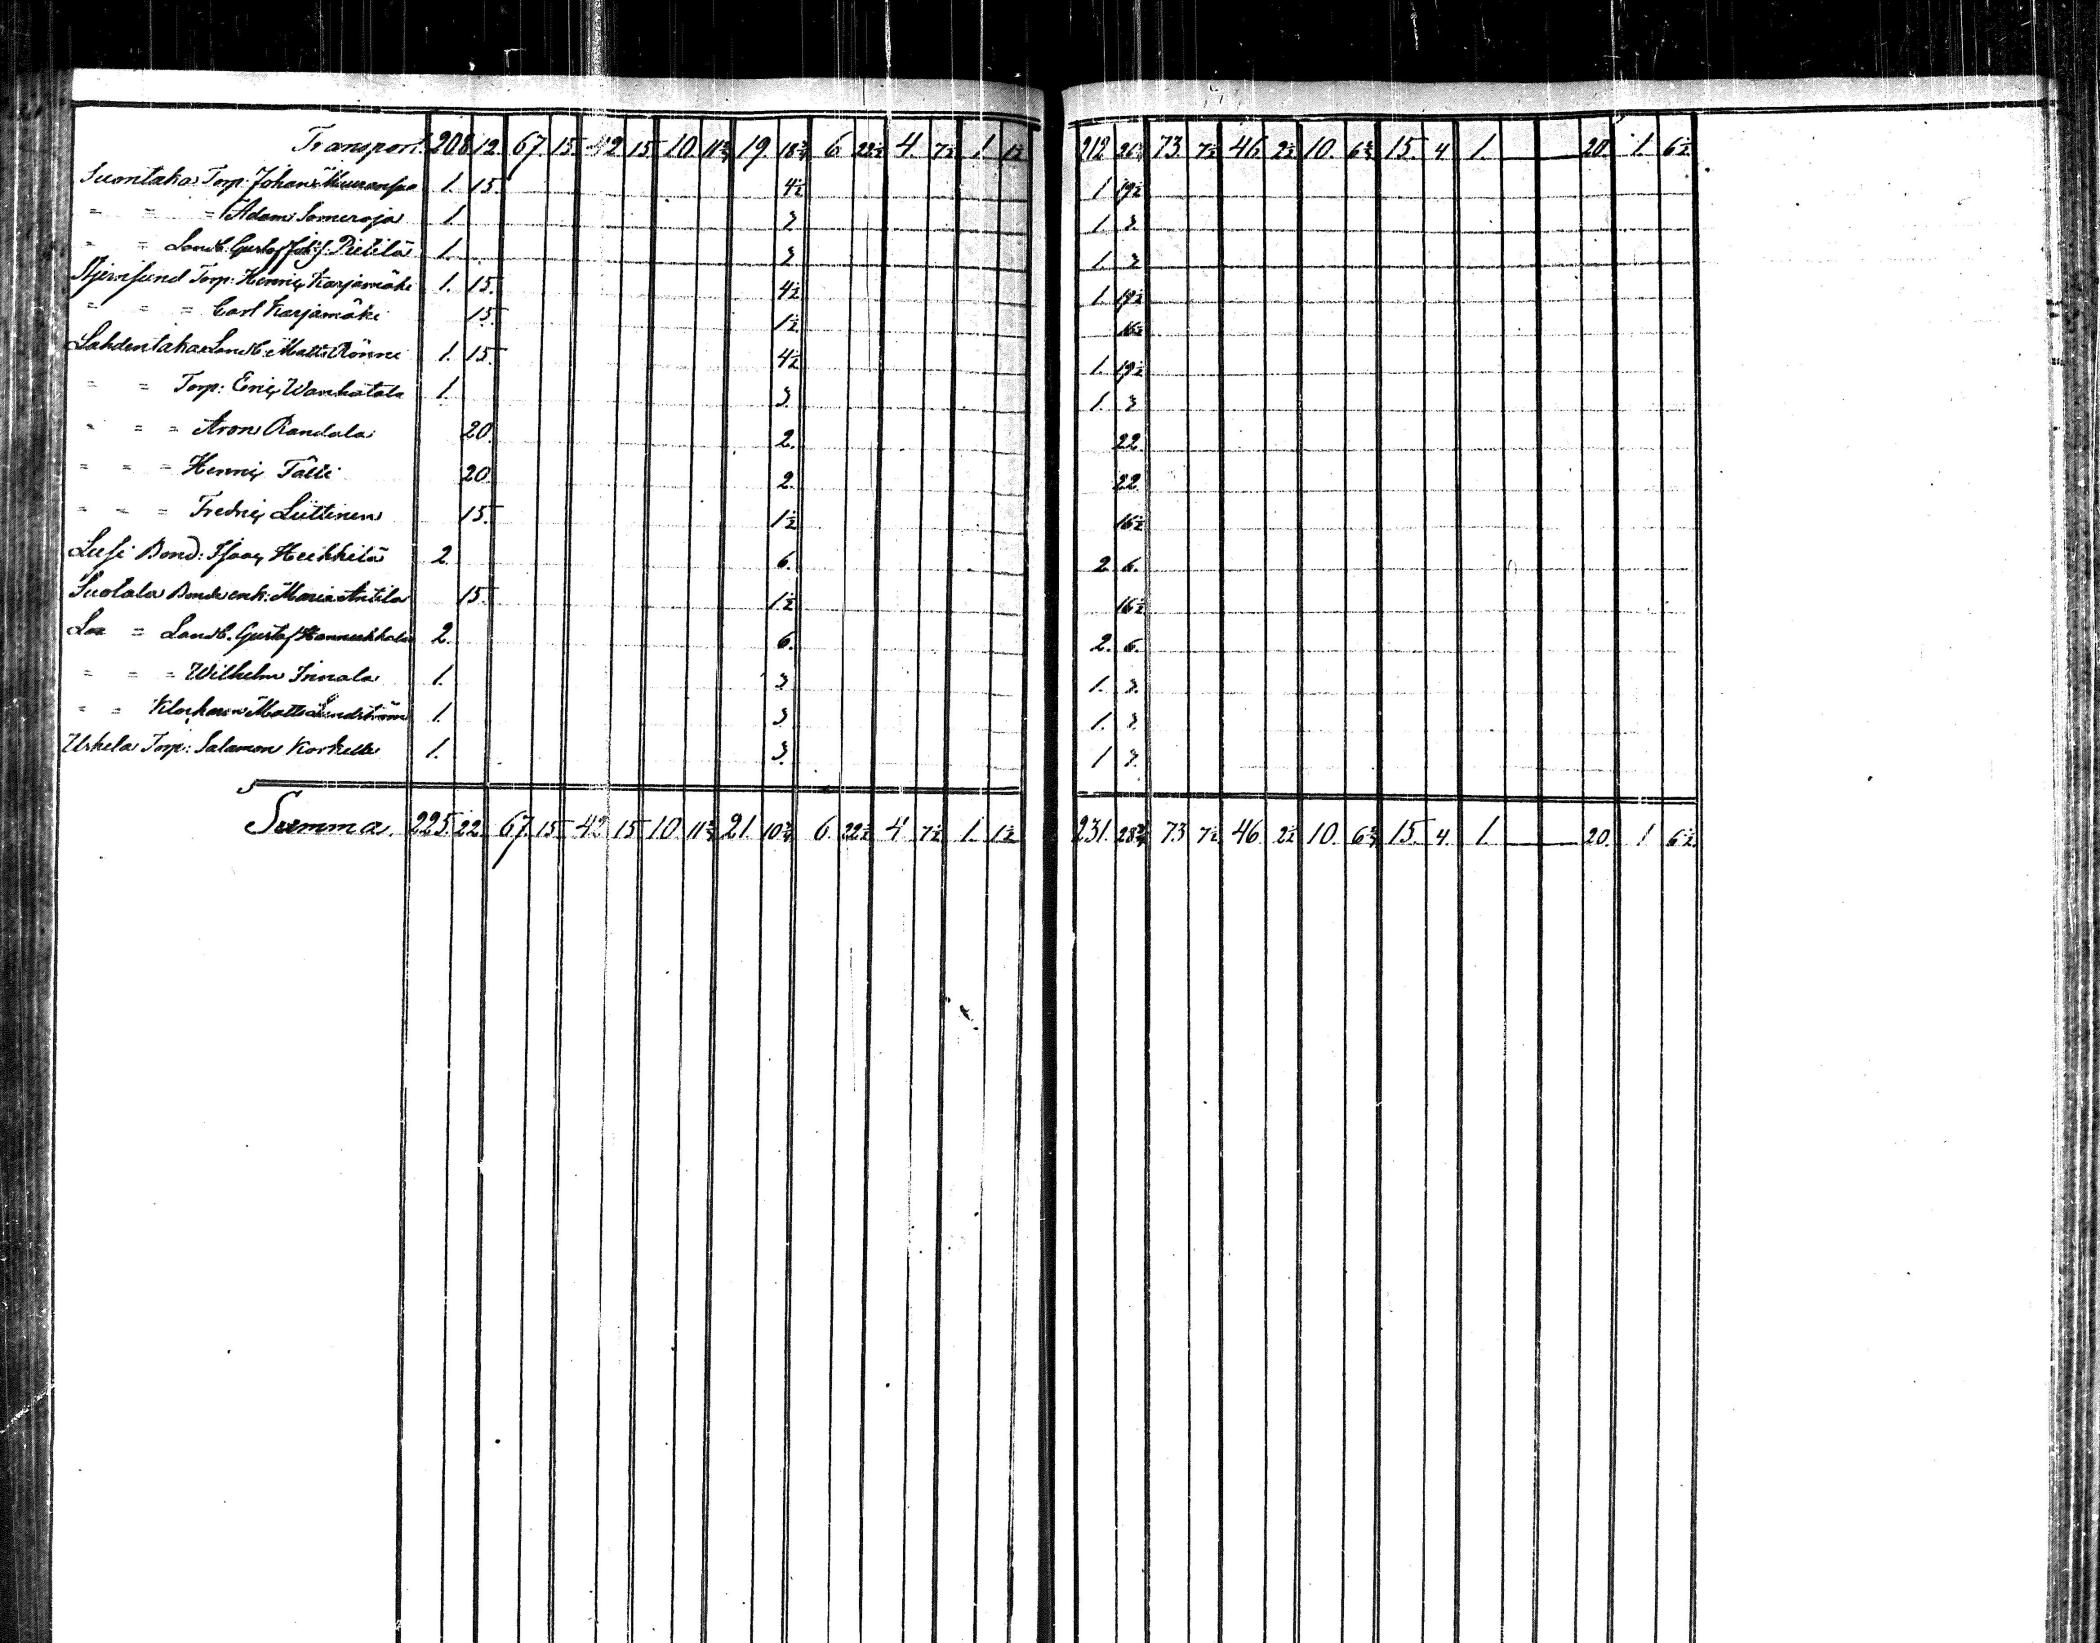 Transport. 208. 12. 67. 15. 42 15 10. 11¾ 19. 18¾ 6 22½ 4. 7½ 1. 1½ 212 26¼ 73 7½ 46. 2½ 10. 6¾ 15. 4 1. 20. 1. 6½
Suontaka Torp: Johan 1. 15. 4½ 1 19½
= = = Adam Someroja 1. 3 1 3.
= = Landb. Gustaf Pietilä 1. 3 1. 3
Stjernsund Torp: Henric Karjamäki 1. 15. 4½ 1. 19½
= = = Carl Karjamäki 15. 1½ 16½
Lahdentaka Landb: Matts Rönni 1. 15. 4½ 1. 19½
= = Torp: Eric Wanhatalo 1. 3. 1. 3
= = = Aron Randala 20. 2. 22.
= = = Henric Tälli 20. 2. 22
= = = Fredric Liittinen 15. 1½ 16½
Lusi Bond: Isaac Heikkilä 2. 6. 2 6.
Suotala Bonde enk: Maria Anttila 15. 1½ 16½
= Landb. Gustaf 2. 6. 2. 6.
= = = Wilhelm Innala 1. 3 1. 3.
= = Klockaren Matts Lindström 1. 3 1. 3.
Uskela Torp: Salamon Korkilla 1. 3. 1 3.
Summa. 225. 22. 67. 15 42 15 10. 11¾ 21. 10¾ 6. 22½ 4 7½ 1. 1½ 231. 28¾ 73 7½ 46. 2½ 10. 6¾ 15. 4. 1. 20. 1 6½